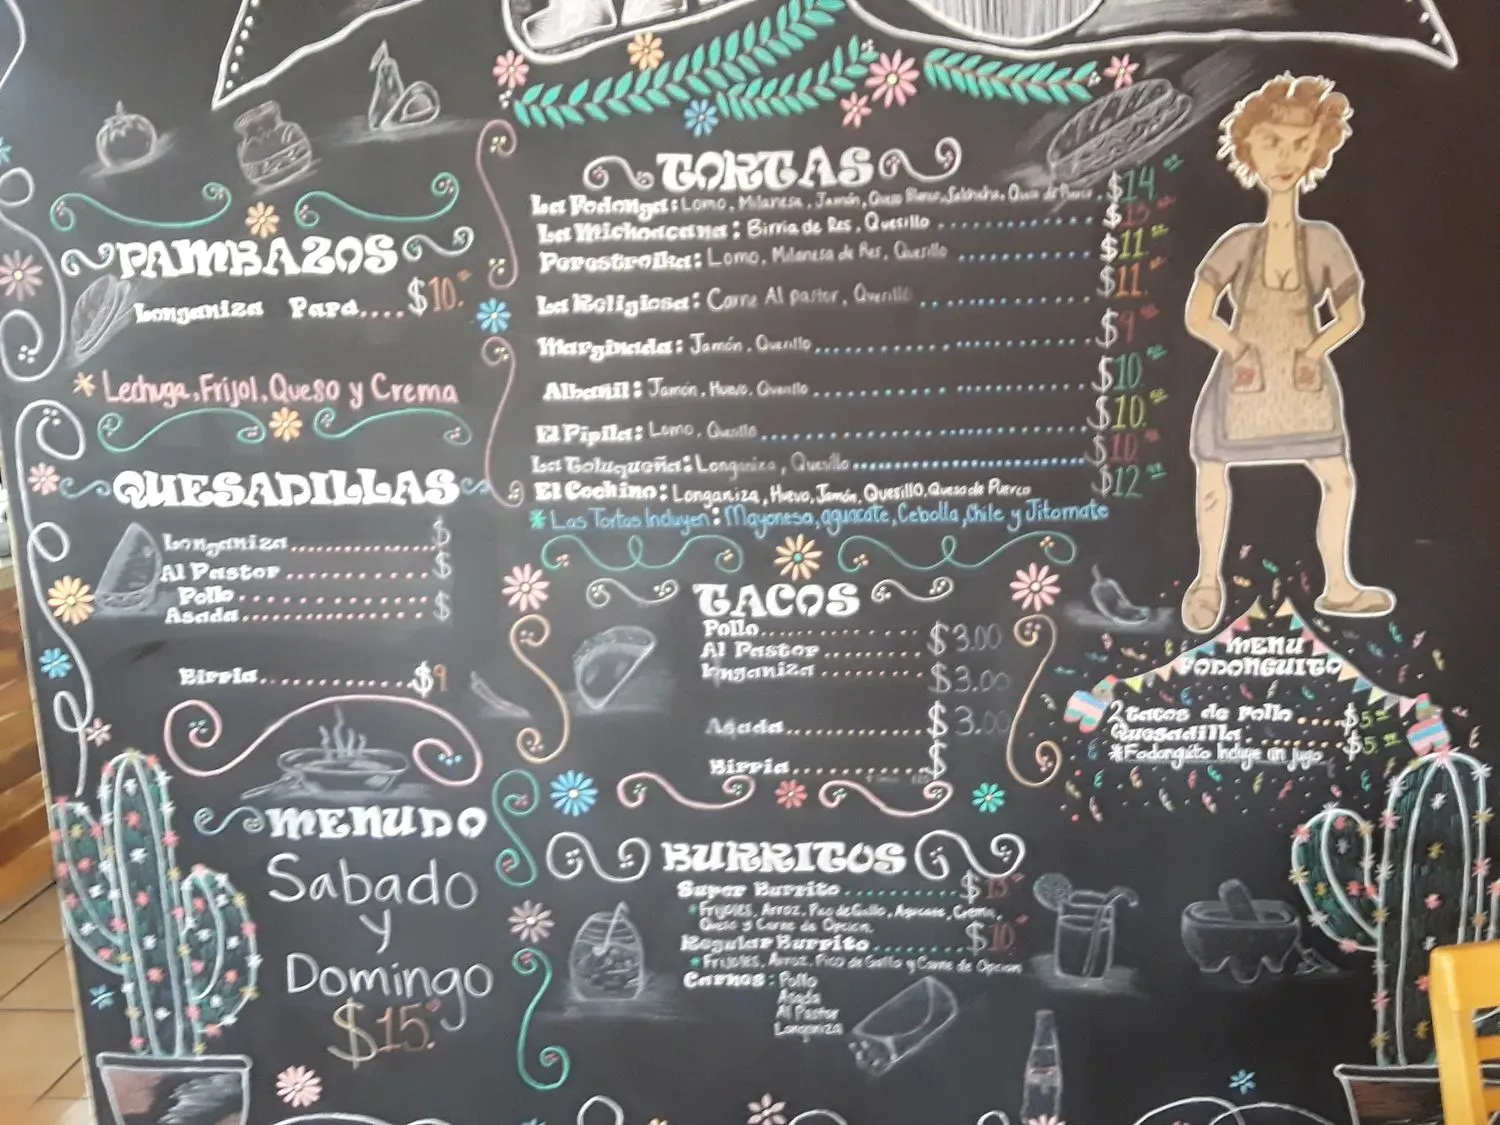 PAMBAZOS
Longaniza Papa....$10.
* Lechuga, Frijol, Queso y Crema
QUESADILLAS
Longaniza..................$
Al Pastor..................$
Pollo..................$
Asada..................$
Birria..................$9
MENUDO
Sabado
y
Domingo
$15.
TORTAS
La Fodonga: Lomo, Milanesa, Jamón, Queso Blanco, Salchicha, Queso de Puerco . $14
La Michoacana: Birria de Res, Quesillo ............ $13
Perestroika: Lomo, Milanesa de Res, Quesillo ............ $11.
La Religiosa: Carne Al pastor, Quesillo ............ $11.
Marginada: Jamón, Quesillo ............ $9
Albañil: Jamón, Huevo, Quesillo ............ $10
El Pipila: Lomo, Quesillo ............ $10.
La Toluqueña: Longaniza, Quesillo ............ $10
El Cochino: Longaniza, Huevo, Jamón, Quesillo, Queso de Puerco $12
* Las Tortas Incluyen: Mayonesa, aguacate, Cebolla, Chile y Jitomate
TACOS
Pollo..................$3.00
Al Pastor..................
Longaniza..................$3.00
Asada..................$3.00
Birria..................$
BURRITOS
Super Burrito ............ $13.
* Frijoles, Arroz, Pico de Gallo, Aguacate, Crema,
Queso y Carne de Opcion.
Regular Burrito ............ $10
* Frijoles, Arroz, Pico de Gallo y Carne de Opcion
Carnes: Pollo
Asada
Al Pastor
Longaniza
MENU
FODONGUITO
2 tacos de Pollo ....$5.
Quesadilla ............$5.
*Fodonguito Incluye un jugo